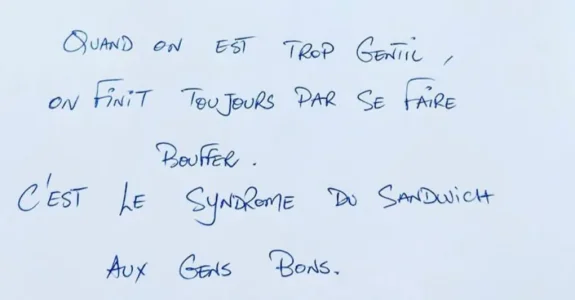 QUAND ON EST TROP GENTIL,
ON FINIT TOUJOURS PAR SE FAIRE
BOUFFER.
C'EST LE SYNDROME DU SANDWICH
AUX GENS BONS.